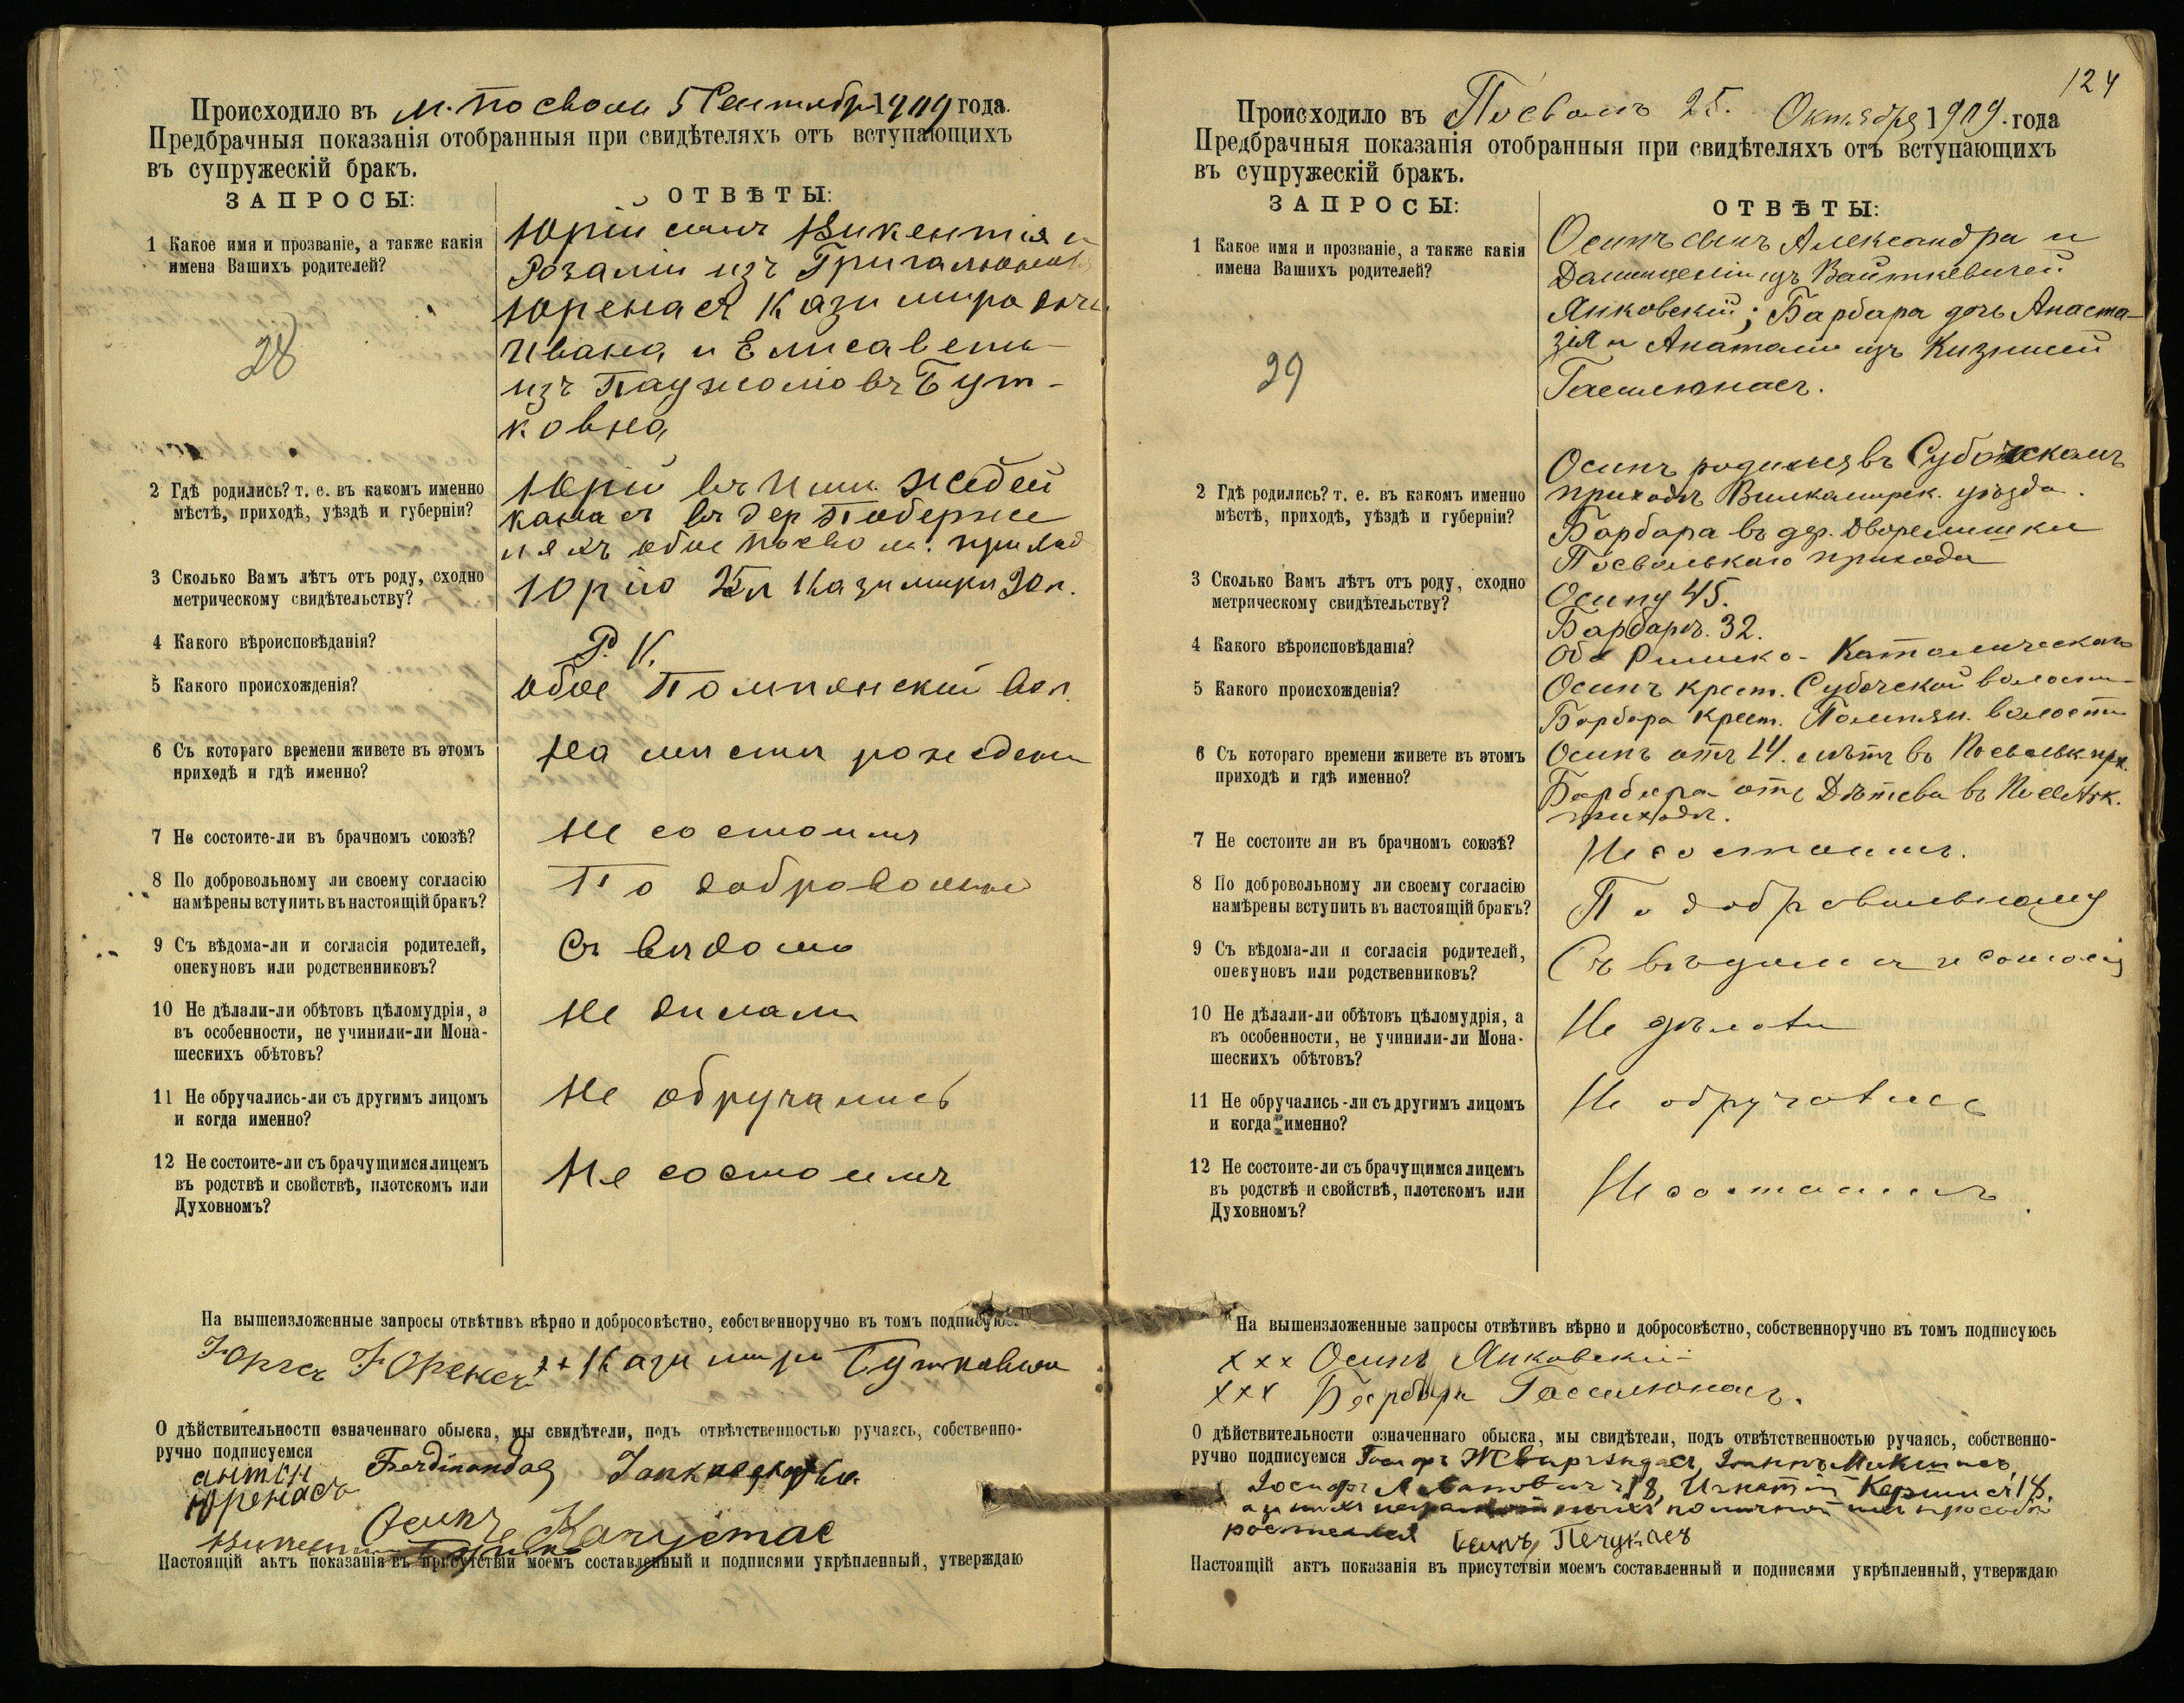 Происходило въ м. Посволи 5 Сентября 1909 года.
Предбрачныя показанія отобранныя при свидѣтеляхъ отъ вступающихъ
въ супружескій бракъ.
ЗАПРОСЫ:
ОТВѢТЫ:
1 Какое имя и прозваніе, а также какія
имена Вашихъ родителей?
28
Юрій сынъ Викентія и
Розаліи изъ
Юренасъ Казимира дочь
Ивана и Елисаветы
изъ Бут-
ковна
2 Гдѣ родились? т. е. въ какомъ именно
мѣстѣ, приходѣ, уѣздѣ и губерніи?
Юрій въ
въ дер
обое Посвол. приход
3 Сколько Вамъ лѣтъ отъ роду, сходно
метрическому свидѣтельству?
Юрію 25 л Казимири 20 л.
4 Какого вѣроисповѣданія?
Р. К.
5 Какого происхожденія?
обое Помпянскій вол.
6 Съ котораго времени живете въ этомъ
приходѣ и гдѣ именно?
На мисти рожедени
7 Не состоите-ли въ брачномъ союзѣ?
Не состоимъ
8 По добровольному ли своему согласію
намѣрены вступить въ настоящій бракъ?
По добровольно
9 Съ вѣдома-ли и согласія родителей,
опекуновъ или родственниковъ?
Съ видома
10 Не дѣлали-ли обѣтовъ цѣломудрія, а
въ особенности, не учинили-ли Мона-
шескихъ обѣтовъ?
Не дилали
11 Не обручались-ли съ другимъ лицомъ
и когда именно?
Не обручались
12 Не состоите-ли съ брачущимся лицемъ
въ родствѣ и свойствѣ, плотскомъ или
Духовномъ?
Не состоимъ
На вышеизложенные запросы отвѣтивъ вѣрно и добросовѣстно, собственноручно въ томъ подписуюсь
Юргсъ Юренсъ ++ Казимира Бутковна
О дѣйствительности означеннаго обыска, мы свидѣтели, подъ отвѣтственностью ручаясь, собственно-
ручно подписуемся Ferdinandas
антон
Юренасъ
Осипъ
Настоящій актъ показанія въ присутствіи моемъ составленный и подписями укрѣпленный, утверждаю
124
Происходило въ Посволѣ 25. Октября 1909. года
Предбрачныя показанія отобранныя при свидѣтеляхъ отъ вступающихъ
въ супружескій бракъ.
ЗАПРОСЫ:
ОТВѢТЫ:
1 Какое имя и прозваніе, а также какія
имена Вашихъ родителей?
29
Осипъ сынъ Александра и
изъ Вайткевичей
Янковскій; Барбара дочь Анаста-
зія и Анатоліи изъ
Гасилюнасъ.
2 Гдѣ родились? т. е. въ какомъ именно
мѣстѣ, приходѣ, уѣздѣ и губерніи?
Осипъ родился въ Субочскомъ
приходѣ Вилкомирск. уѣзда.
Барбара въ дер. Дворелишки
Посвольскаго прихода
3 Сколько Вамъ лѣтъ отъ роду, сходно
метрическому свидѣтельству?
Осипу 45.
Барбарѣ. 32.
4 Какого вѣроисповѣданія?
Оба Римско-Католическаго
5 Какого происхожденія?
Осипъ крест. Субочской волости
Барбара крест. Помпян. волости
6 Съ котораго времени живете въ этомъ
приходѣ и гдѣ именно?
Осипъ отъ 14. лѣтъ въ Посвольк. прх.
Барбара отъ Дѣтсва въ
приходѣ.
7 Не состоите ли въ брачномъ союзѣ?
Не состоимъ.
8 По добровольному ли своему согласію
намѣрены вступить въ настоящій бракъ?
По добровольному
9 Съ вѣдома-ли и согласія родителей,
опекуновъ или родственниковъ?
Съ вѣдома и согласія
10 Не дѣлали-ли обѣтовъ цѣломудрія, а
въ особенности, не учинили-ли Мона-
шескихъ обѣтовъ?
Не дѣлали
11 Не обручались-ли съ другимъ лицомъ
и когда именно?
Не обручались
12 Не состоите-ли съ брачущимся лицемъ
въ родствѣ и свойствѣ, плотскомъ или
Духовномъ?
Не состоимъ.
На вышеизложенные запросы отвѣтивъ вѣрно и добросовѣстно, собственноручно въ томъ подписуюсь
ххх Осипъ Янковскій
ххх Барбара Гасилюнасъ.
О дѣйствительности означеннаго обыска, мы свидѣтели, подъ отвѣтственностью ручаясь, собственно-
ручно подписуемся
Иосифъ Игнатій
Осипъ Печукасъ
Настоящій актъ показанія въ присутствіи моемъ составленный и подписями укрѣпленный, утверждаю